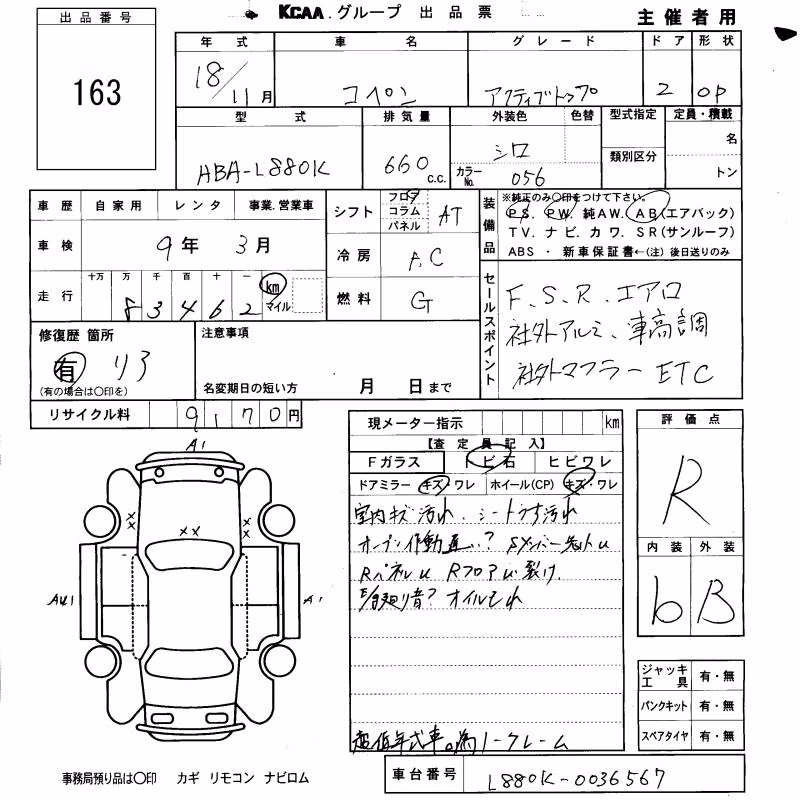 KCAA.グループ 出品票
主催者用
出品番号
163
年式 車名 グレード ドア 形状
18/11月 コペン アクティブトップ 2 OP
型式 排気量 外装色 色替 型式指定 定員・積載
HBA-L880K 660 c.c. シロ カラーNo. 056 類別区分 名 トン
車歴 自家用 レンタ 事業.営業車
車検 9年 3月
走行 十万 万 千 百 十 一
83462 km マイル
シフト フロア コラム パネル AT
冷房 A.C
燃料 G
装備品 ※純正のみ○印をつけて下さい。
PS. PW. 純AW. AB(エアバック)
TV. ナビ. カワ. SR(サンルーフ)
ABS ・ 新車保証書←(注) 後日送りのみ
セールスポイント
F.S.R.エアロ
社外アルミ、車高調
社外マフラー ETC
修復歴 箇所
有 リア
(有の場合は○印を)
注意事項
名変期日の短い方 月 日まで
リサイクル料 9170円
現メーター指示 km
【査定員記入】
Fガラス トビ石 ヒビワレ
ドアミラー キズ・ワレ ホイール(CP) キズ・ワレ
室内キズ汚れ、シートうち汚れ
オープン作動遅い? Sメンバー先トU
RパネルU RフロアU裂け.
廻り音? オイルもれ
超低年式車の為ノークレーム
評価点
R
内装 外装
b B
ジャッキ工具 有・無
パンクキット 有・無
スペアタイヤ 有・無
A1
××
××
××
AU1
A1
事務局預り品は○印 カギ リモコン ナビロム
車台番号 L880K-0036567